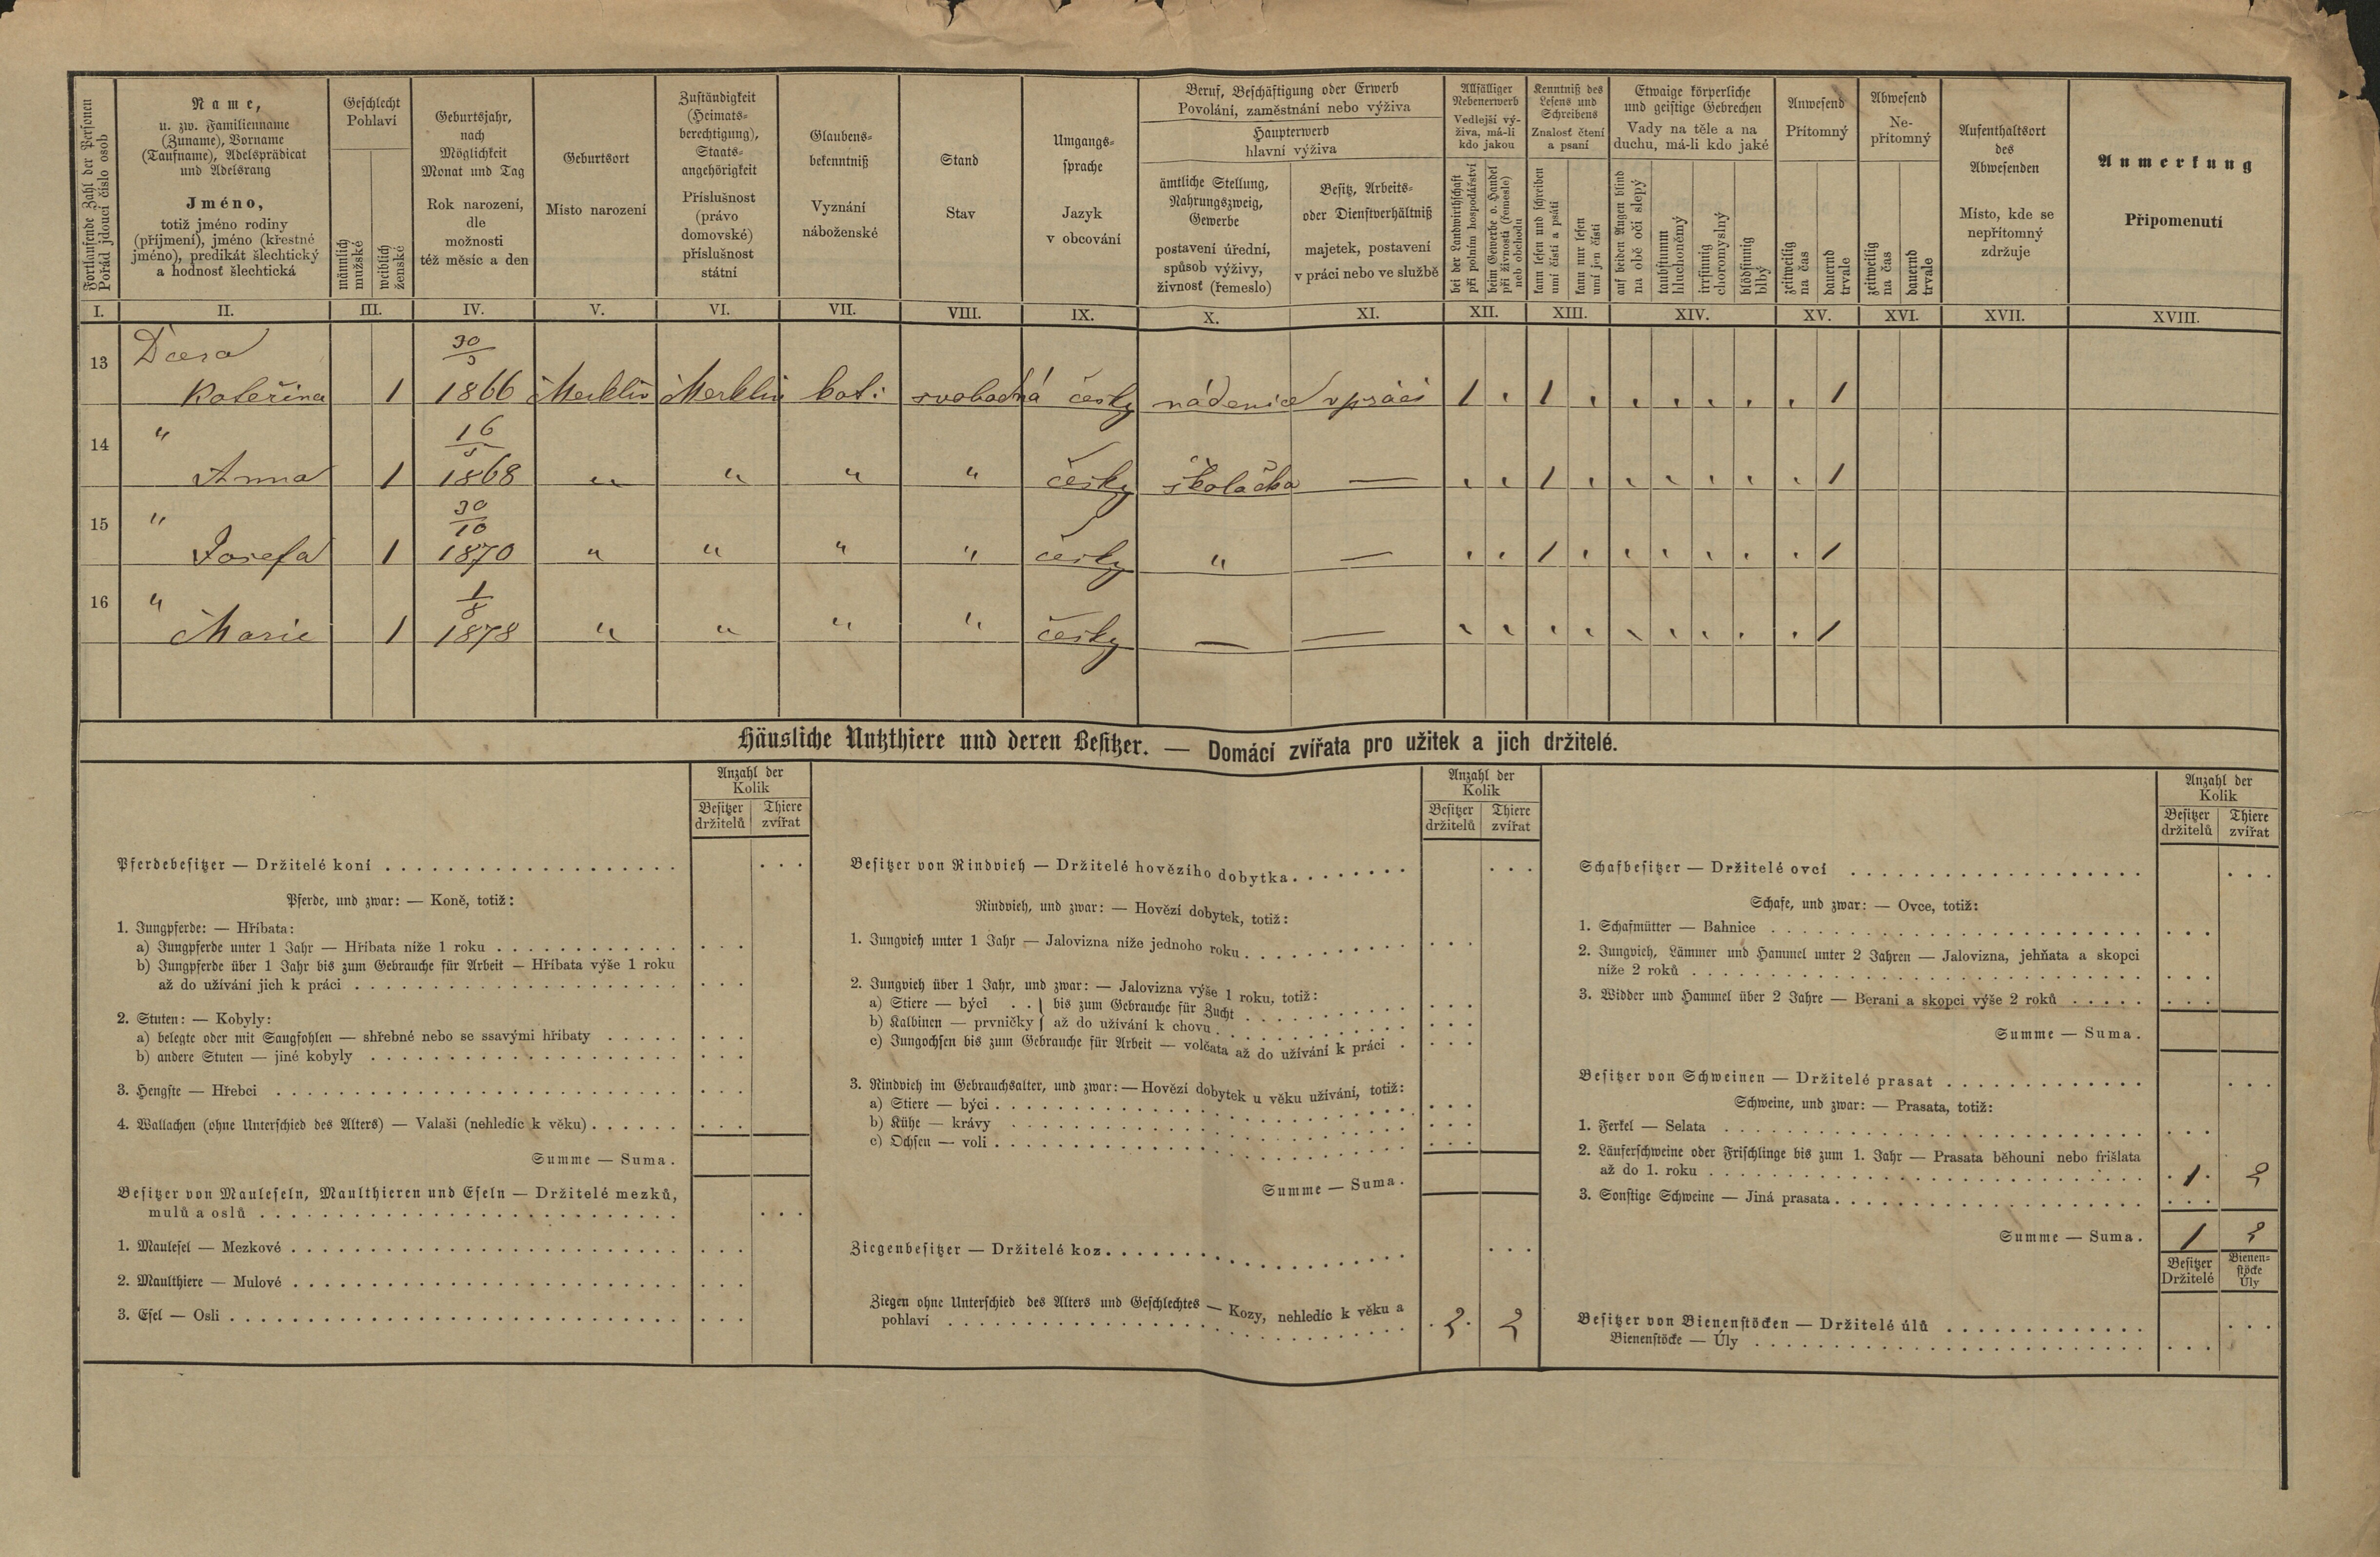 Fortlaufende Zahl der Personen
Pořád jdoucí číslo osob
Name,
u. zw. Familienname
(Zuname), Vorname
(Taufname), Adelsprädicat
und Adelsrang
Jméno,
totiž jméno rodiny
(příjmení), jméno (křestné
jméno), predikát šlechtický
a hodnosť šlechtická
Geschlecht
Pohlaví
männlich
mužské
weiblich
ženské
Geburtsjahr,
nach
Möglichkeit
Monat und Tag
Rok narození,
dle
možnosti
též měsíc a den
Geburtsort
Místo narození
Zuständigkeit
(Heimats-
berechtigung),
Staats-
angehörigkeit
Příslušnost
(právo
domovské)
příslušnost
státní
Glaubens-
bekenntniß
Vyznání
náboženské
Stand
Stav
Umgangs-
sprache
Jazyk
v obcování
Beruf, Beschäftigung oder Erwerb
Povolání, zaměstnání nebo výživa
Haupterwerb
hlavní výživa
ämtliche Stellung,
Nahrungszweig,
Gewerbe
postavení úřední,
spůsob výživy,
živnosť (řemeslo)
Besitz, Arbeits-
oder Dienstverhältniß
majetek, postavení
v práci nebo ve službě
Allfälliger
Nebenerwerb
Vedlejší vý-
živa, má-li
kdo jakou
bei der Landwirthschaft
při polním hospodářství
beim Gewerbe o. Handel
při živnosti (řemesle)
neb obchodu
Kenntniß des
Lesens und
Schreibens
Znalosť čtení
a psaní
kann lesen und schreiben
umí čísti a psáti
kann nur lesen
umí jen čísti
Etwaige körperliche
und geistige Gebrechen
Vady na těle a na
duchu, má-li kdo jaké
auf beiden Augen blind
na obě oči slepý
taubstumm
hluchoněmý
irrsinnig
choromyslný
blödsinnig
blbý
Anwesend
Přítomný
zeitweilig
na čas
dauernd
trvale
Abwesend
Ne-
přítomný
zeitweilig
na čas
dauernd
trvale
Aufenthaltsort
des
Abwesenden
Místo, kde se
nepřítomný
zdržuje
Anmerkung
Připomenutí
I. II. III. IV. V. VI. VII. VIII. IX. X. XI. XII. XIII. XIV. XV. XVI. XVII. XVIII.
13 Dcera 30/3
Kateřina 1 1866 Merklín Merklín kat: svobodná česky nádenice v práci 1 1 1
14 " 16
Anna 1 1868 " " " " česky školačka — 1 1
15 " 30/10
Josefa 1 1870 " " " " česky " — 1 1
16 " 1/8
Marie 1 1878 " " " " česky — — 1
Häusliche Nutzthiere und deren Besitzer. — Domácí zvířata pro užitek a jich držitelé.
Anzahl der
Kolik
Besitzer
držitelů
Thiere
zvířat
Pferdebesitzer — Držitelé koní
Pferde, und zwar: — Koně, totiž:
1. Jungpferde: — Hříbata:
a) Jungpferde unter 1 Jahr — Hříbata níže 1 roku
b) Jungpferde über 1 Jahr bis zum Gebrauche für Arbeit — Hříbata výše 1 roku
až do užívání jich k práci
2. Stuten: — Kobyly:
a) belegte oder mit Saugfohlen — shřebné nebo se ssavými hříbaty
b) andere Stuten — jiné kobyly
3. Hengste — Hřebci
4. Wallachen (ohne Unterschied des Alters) — Valaši (nehledíc k věku)
Summe — Suma.
Besitzer von Mauleseln, Maulthieren und Eseln — Držitelé mezků,
mulů a oslů
1. Maulesel — Mezkové
2. Maulthiere — Mulové
3. Esel — Osli
Anzahl der
Kolik
Besitzer
držitelů
Thiere
zvířat
Besitzer von Rindvieh — Držitelé hovězího dobytka
Rindvieh, und zwar: — Hovězí dobytek, totiž:
1. Jungvieh unter 1 Jahr — Jalovizna níže jednoho roku
2. Jungvieh über 1 Jahr, und zwar: — Jalovizna výše 1 roku, totiž:
a) Stiere — býci . . } bis zum Gebrauche für Zucht
b) Kalbinen — prvničky } až do užívání k chovu
c) Jungochsen bis zum Gebrauche für Arbeit — volčata až do užívání k práci
3. Rindvieh im Gebrauchsalter, und zwar: — Hovězí dobytek u věku užívání, totiž:
a) Stiere — býci
b) Kühe — krávy
c) Ochsen — voli
Summe — Suma.
Ziegenbesitzer — Držitelé koz
Ziegen ohne Unterschied des Alters und Geschlechtes — Kozy, nehledíc k věku a
pohlaví 2 2
Anzahl der
Kolik
Besitzer
držitelů
Thiere
zvířat
Schafbesitzer — Držitelé ovcí
Schafe, und zwar: — Ovce, totiž:
1. Schafmütter — Bahnice
2. Jungvieh, Lämmer und Hammel unter 2 Jahren — Jalovizna, jehňata a skopci
níže 2 roků
3. Widder und Hammel über 2 Jahre — Berani a skopci výše 2 roků
Summe — Suma.
Besitzer von Schweinen — Držitelé prasat
Schweine, und zwar: — Prasata, totiž:
1. Ferkel — Selata
2. Läuferschweine oder Frischlinge bis zum 1. Jahr — Prasata běhouni nebo frišlata
až do 1. roku 1 2
3. Sonstige Schweine — Jiná prasata
Summe — Suma. 1 2
Besitzer
Držitelé
Bienen-
stöcke
Úly
Besitzer von Bienenstöcken — Držitelé úlů
Bienenstöcke — Úly